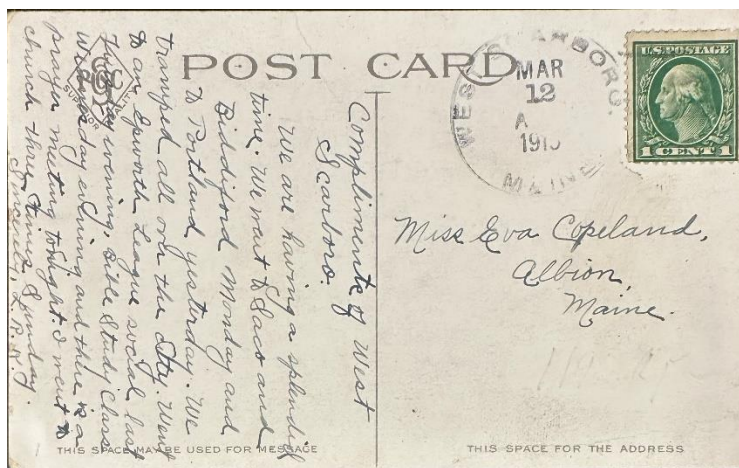 POST CARD
WEST SCARBORO.
MAR
12
A
191
MAINE
U.S. POSTAGE
1 CENT 1
Compliments of West
Scarboro.
We are having a splendid
time. We went to Saco and
Biddiford Monday and
to Portland yesterday. We
tramped all over the city. Went
to an Epworth League social last
evening, Bible Study Class
Wednesday evening and there is a
prayer meeting tonight. I went to
church three times Sunday.
Sincerely, L. R. N.
Miss Eva Copeland,
Albion,
Maine.
THIS SPACE MAY BE USED FOR MESSAGE
THIS SPACE FOR THE ADDRESS